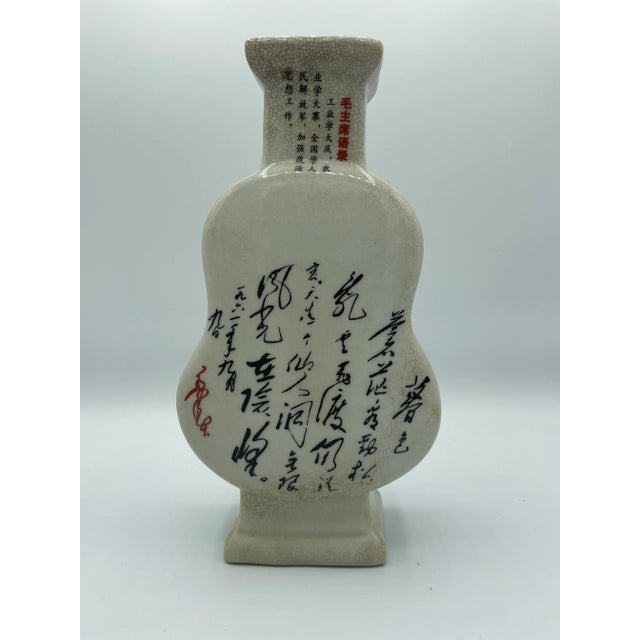 毛主席语录
工业学大庆，农
业学大寨，全国学人
民解放军，加强政治
思想工作。
暮色
苍茫看劲松
乱云飞渡仍从
容天生一个仙人洞无限
风光在险峰。
一九六一年九月
九日